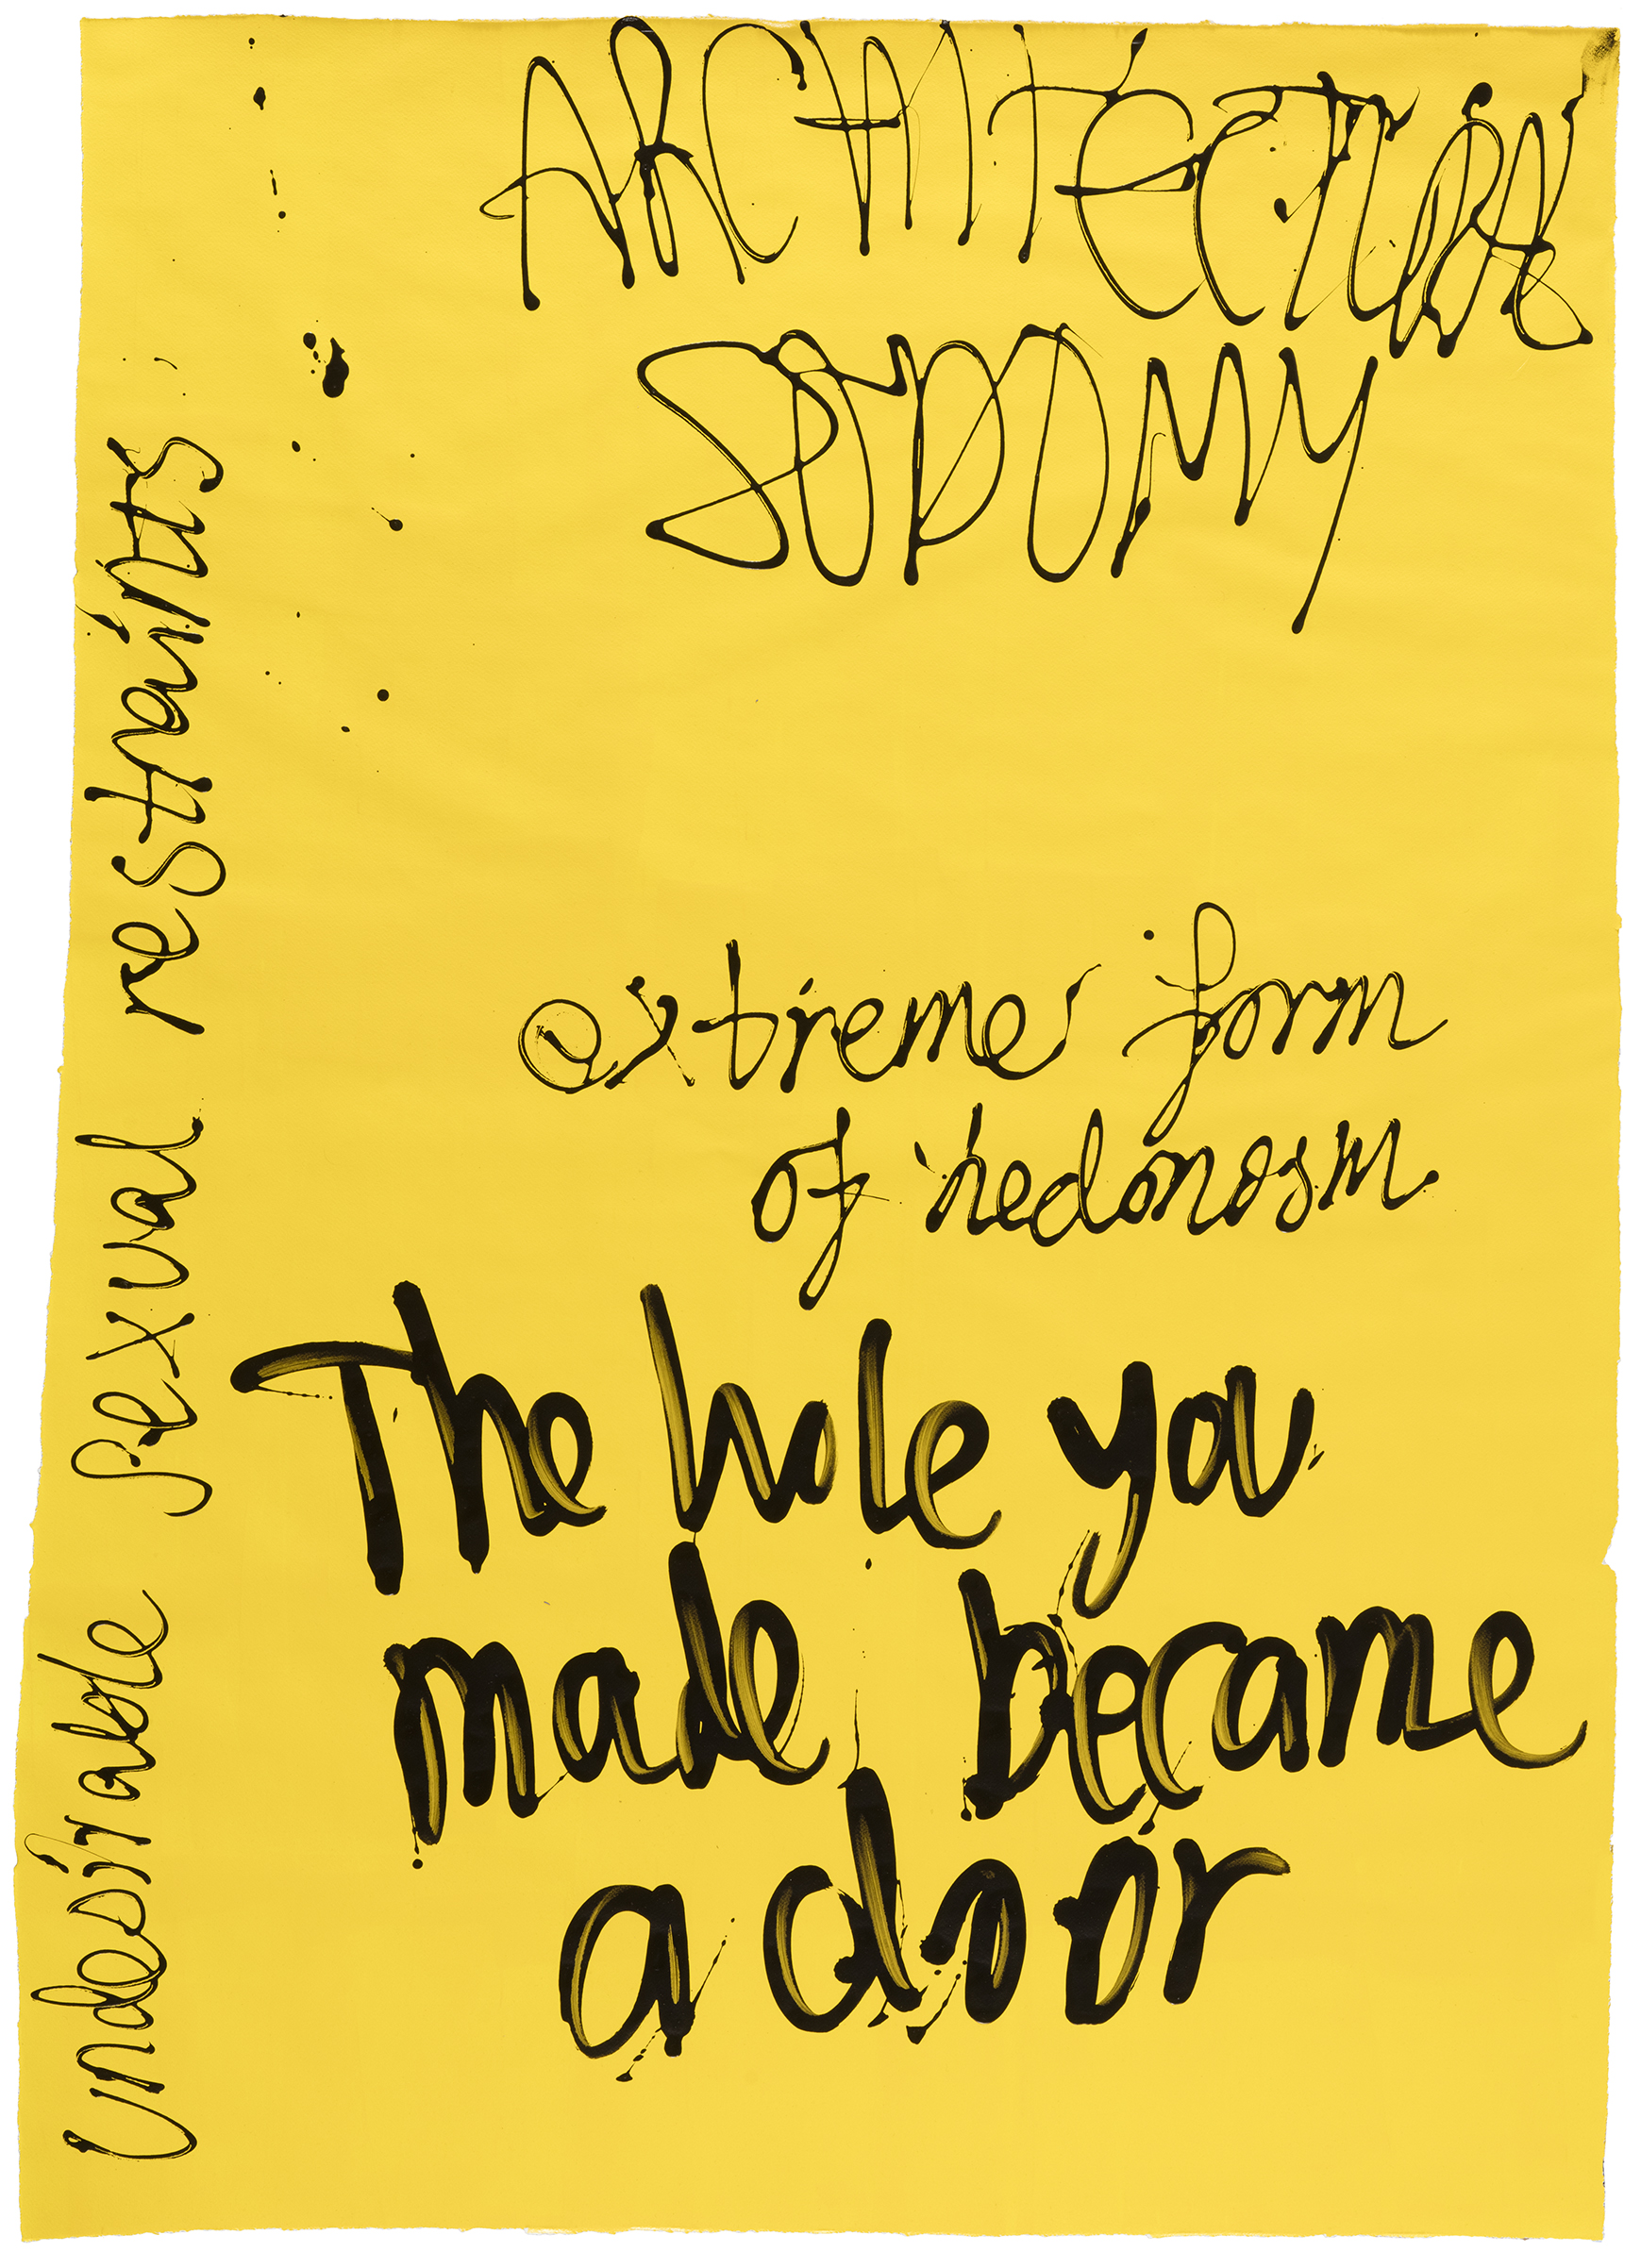 ARCHITECTURAL
SODOMY
extreme form
of hedonosm
The hole you
made became
a door
undesirable sexual restraints